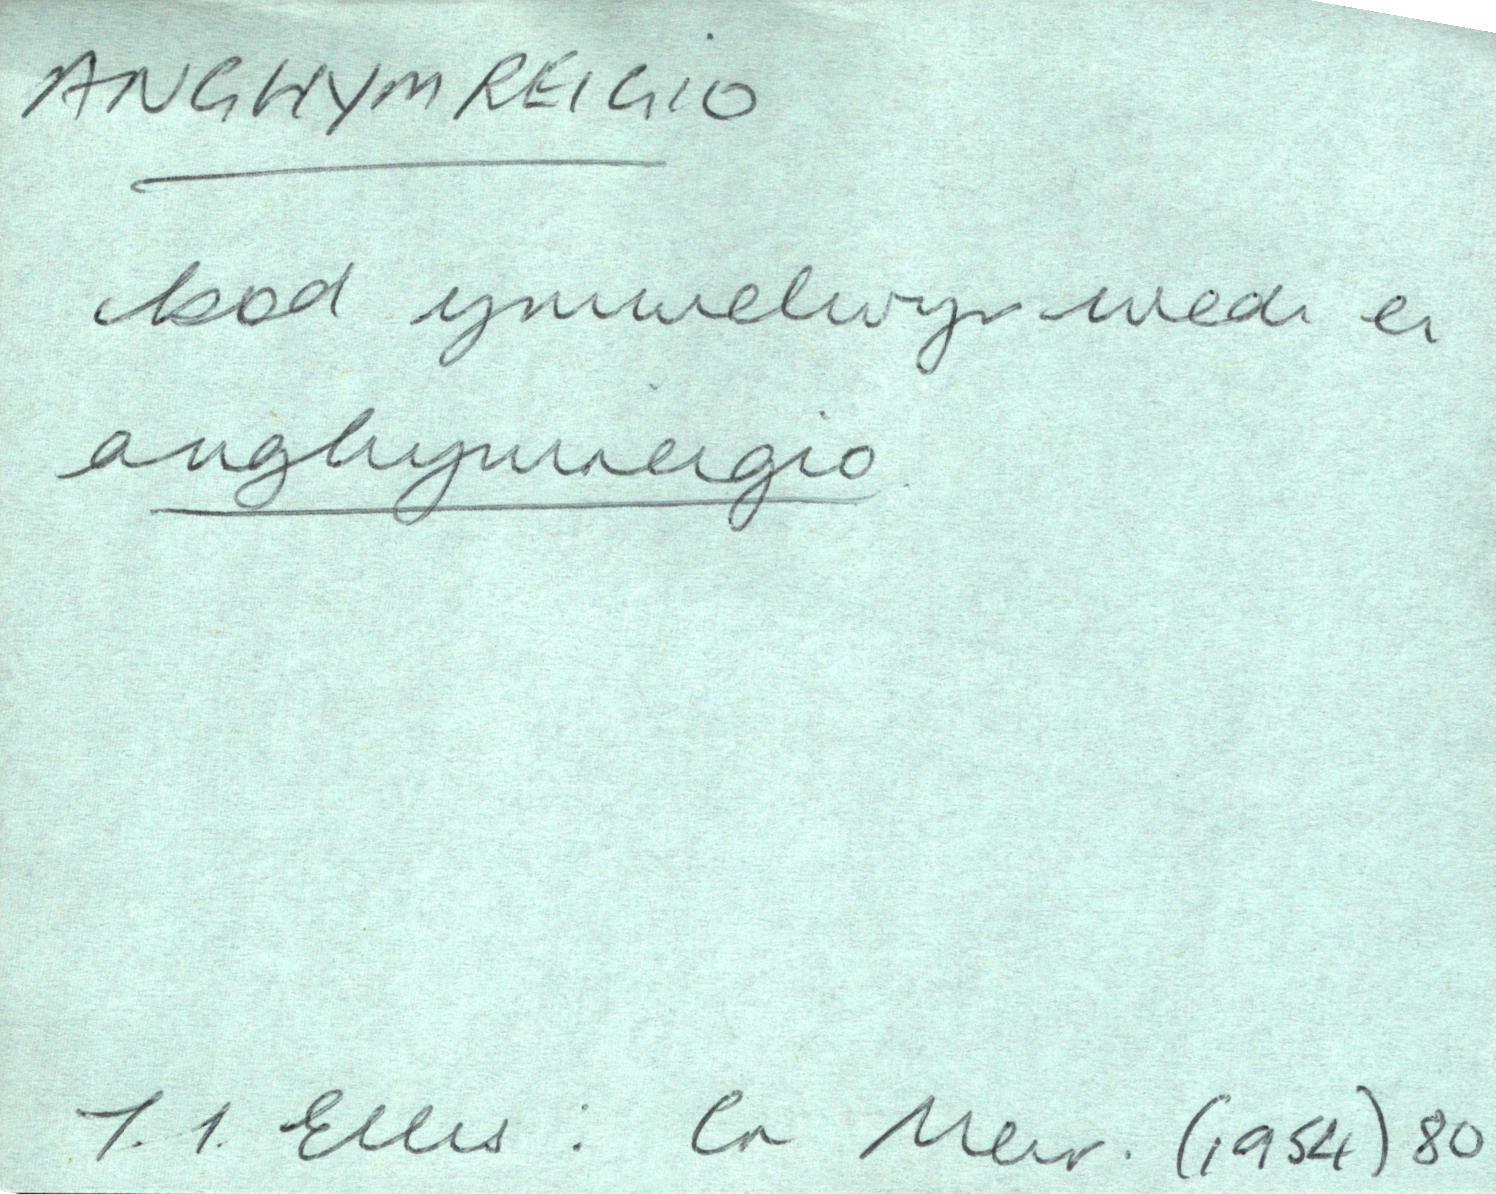 ANGHYMREIGIO
bod ymwelwyr wedi ei
anghymreigio
T. I. Ellis : Cr Meir. (1954) 80